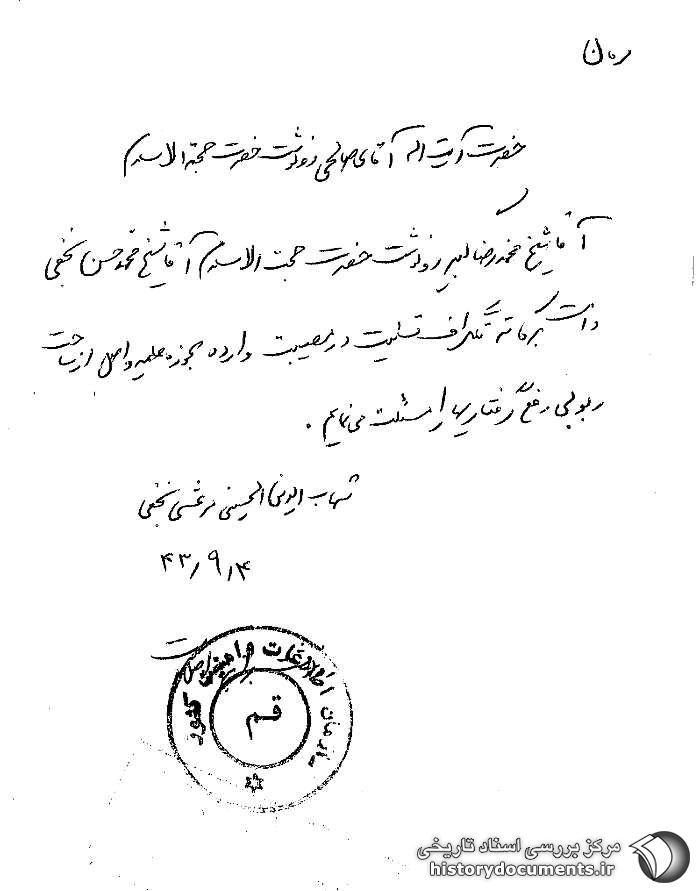 حضرت آیت اله آقای صالحی رونوشت حضرت حجة الاسلام
آقا شیخ محمدرضا رونوشت حضرت حجت الاسلام آقا شیخ محمدحسن نجفی
تلگراف تسلیت در مصیبت وارده بحوزه علمیه واصل از ساحت
ربوبی رفع گرفتاریها را مسئلت می‌نمایم.
شهاب الدین الحسینی مرعشی نجفی
۴۳/۹/۴
سازمان اطلاعات و امنیت کشور
قم
مرکز بررسی اسناد تاریخی
historydocuments.ir